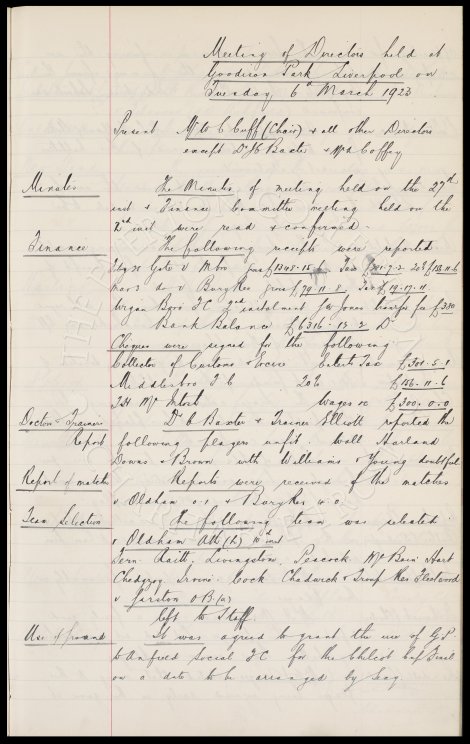 Meeting of Directors held at
Goodison Park Liverpool on
Tuesday 6th March 1923
Present Mr W C Cuff (Chair) & all other Directors
except Dr J C Baxter & Wm Coffey
Minutes The Minutes of meeting held on the 27th
inst & Finance Committee meeting held on the
2nd inst were read & confirmed.
Finance The following receipts were reported
Gate v Mbro gross Tax 20%
Mar 3 do v Bury Res gross £79-11-8 Tax £19-17-11
Wigan Boro FC 2nd instalment Jones transfer fee
Bank Balance £6316-15-2 Dr
Cheques were signed for the following
Collector of Customs & Excise Entert Tax £301-5-1
Middlesbro F C 20% £156-11-6
Wages &c £300-0-0
Doctor & Trainers Dr C Baxter & Trainer Elliott reported the
Report following players unfit. Wall Harland
Downs & Brown with Williams & Young doubtful
Report of matches Reports were received of the matches
v Oldham 0-1 & Bury Res 4-0
Team Selection The following team was selected
v Oldham Ath (h) 10th inst
Fern. Raitt, Livingstone, Peacock Mc Bain Hart
Chedgzoy Irvine Cock Chadwick & Troup Res Fleetwood
v Garston O B (a)
left to Staff.
Use of ground It was agreed to grant the use of G P
to Anfield Social F C for the final
on a date to be arranged by Secy.